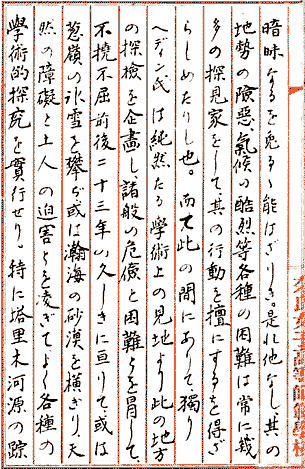 暗昧なるを免るゝ能はざりき。是れ他なし、其の
地勢の険悪、気候の酷烈等各種の困難は常に幾
多の探見家をして、其の行動を擅にするを得ざ
らしめたりし也。而て此の間にありて、獨り
ヘディン氏は純然たる學術上の見地より此の地方
の探檢を企畫し、諸般の危険と困難とを冒して、
不撓不屈前後二十三年の久しきに亘りて、或は
葱嶺の氷雪を攀ぢ或は瀚海の砂漠を横ぎり、天
然の障礙と土人の迫害とを凌ぎてよく各種の
學術的探究を實行せり。特に塔里木河源の踪